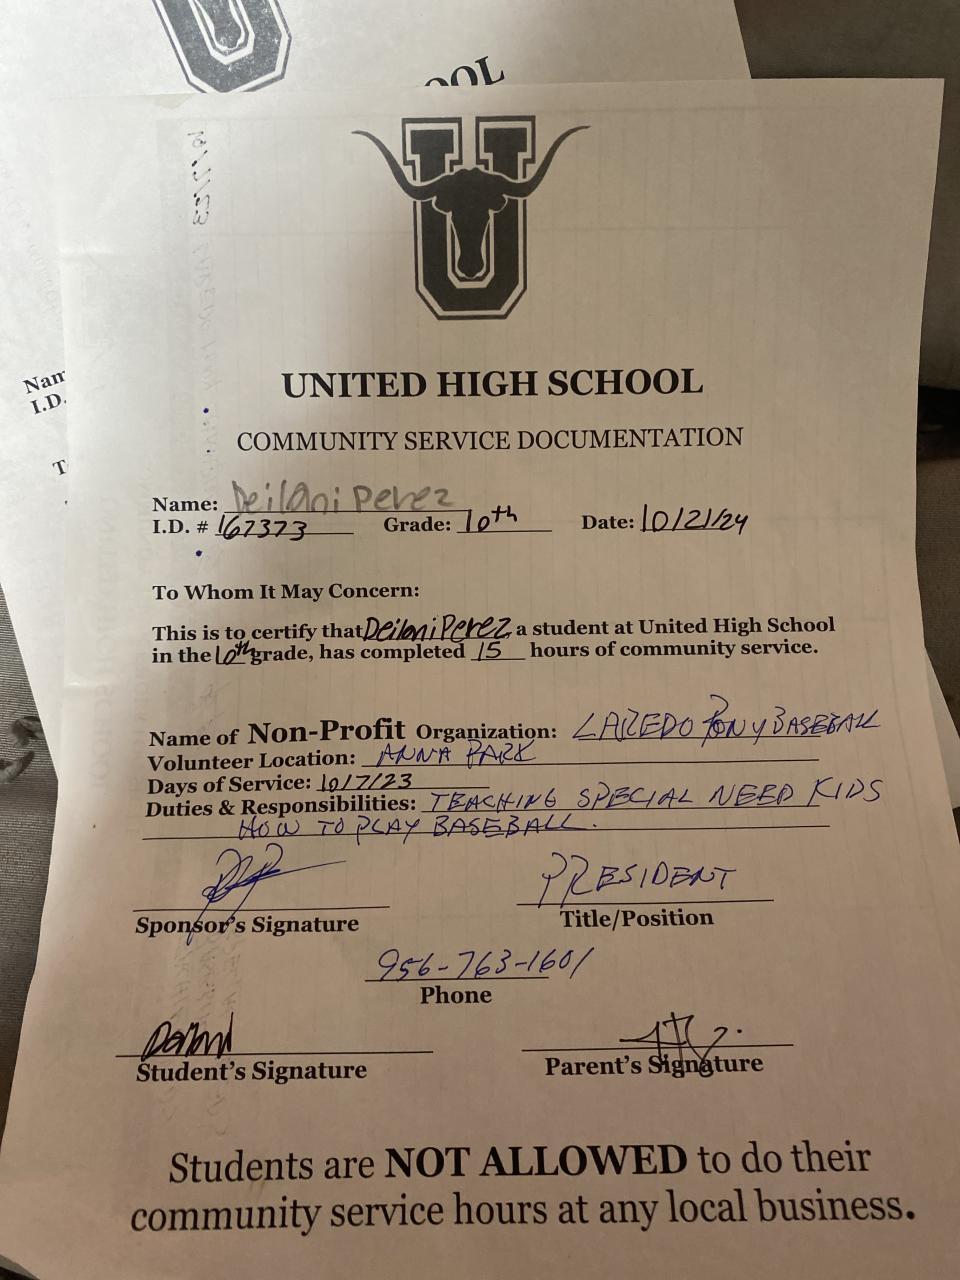 OOL
U
UNITED HIGH SCHOOL
COMMUNITY SERVICE DOCUMENTATION
Nam
I.D.
T
Name: Deilani Perez
I.D. # 167373 Grade: 10th Date: 10/21/24
To Whom It May Concern:
This is to certify that Deilani Perez, a student at United High School
in the 10th grade, has completed 15 hours of community service.
Name of Non-Profit Organization: LAREDO PONY BASEBALL
Volunteer Location: ANNA PARK
Days of Service: 10/7/23
Duties & Responsibilities: TEACHING SPECIAL NEED KIDS
HOW TO PLAY BASEBALL.
PRESIDENT
Sponsor's Signature Title/Position
956-763-1601
Phone
Student's Signature Parent's Signature
Students are NOT ALLOWED to do their
community service hours at any local business.